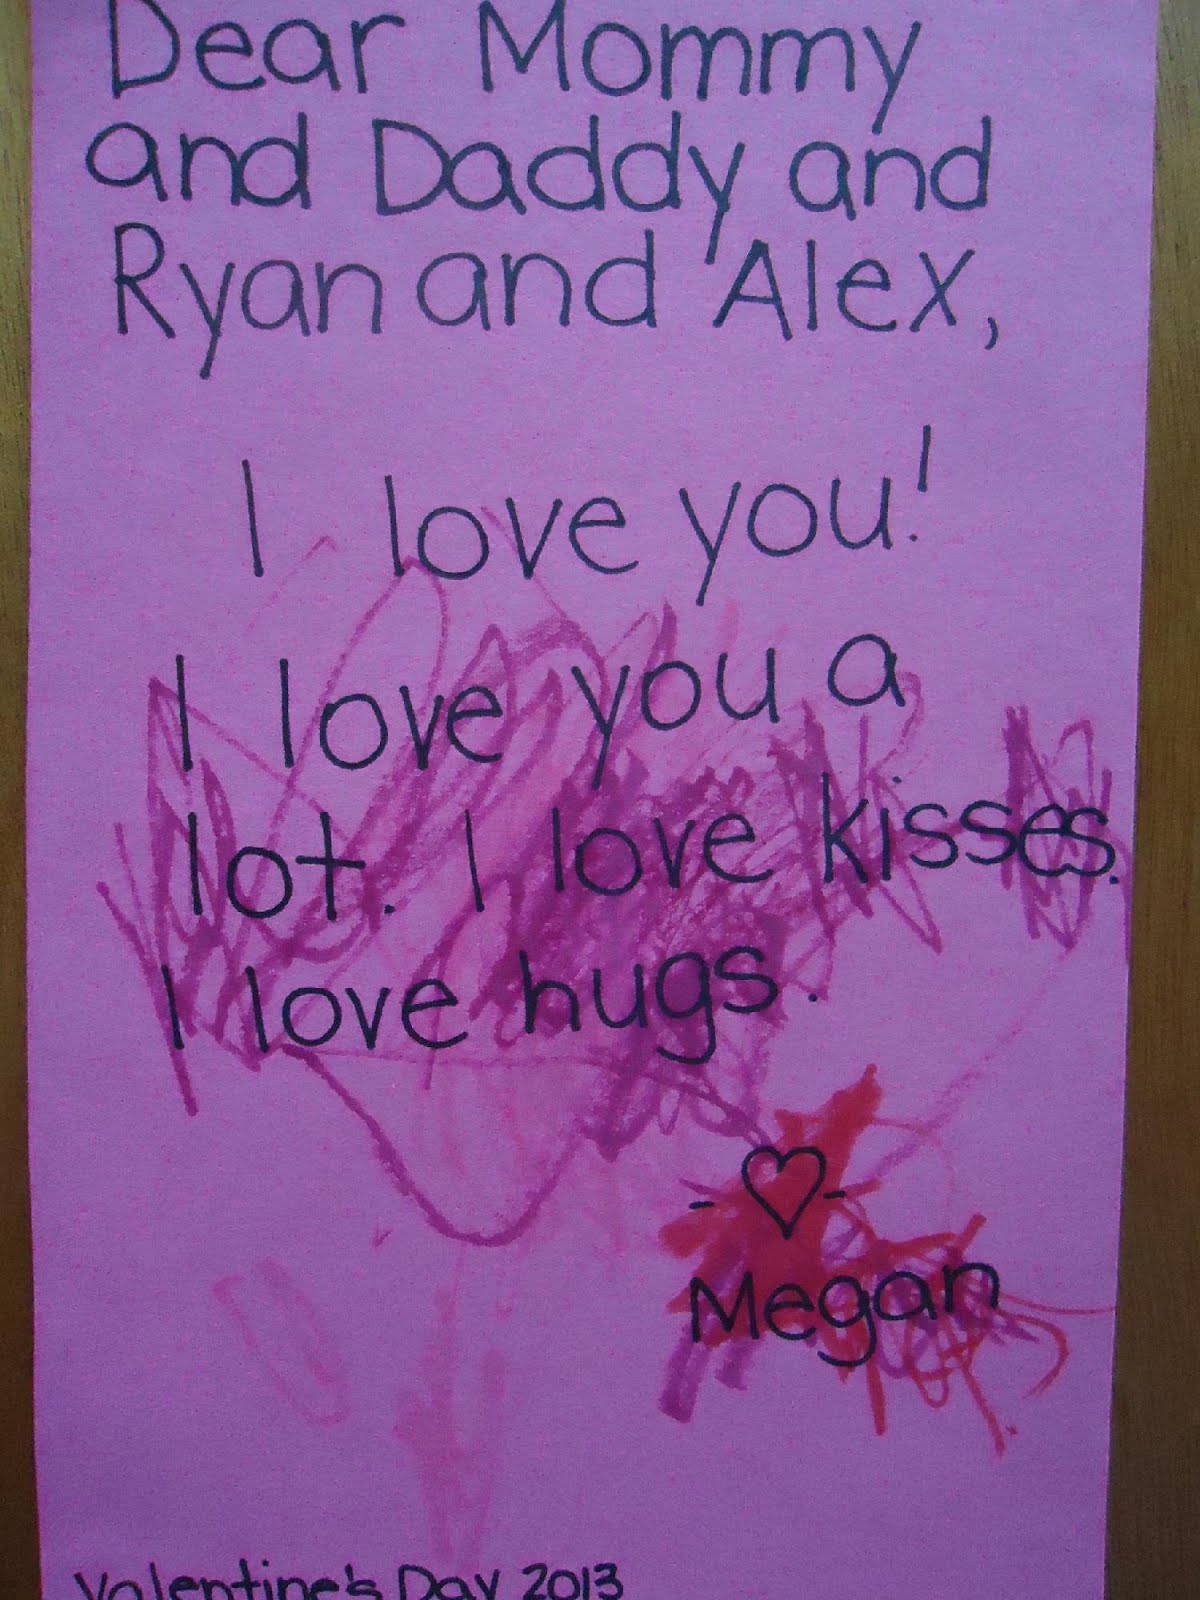 Dear Mommy
and Daddy and
Ryan and Alex,
I love you!
I love you a
lot. I love kisses.
I love hugs.
- ♡ -
Megan
Valentine's Day 2013